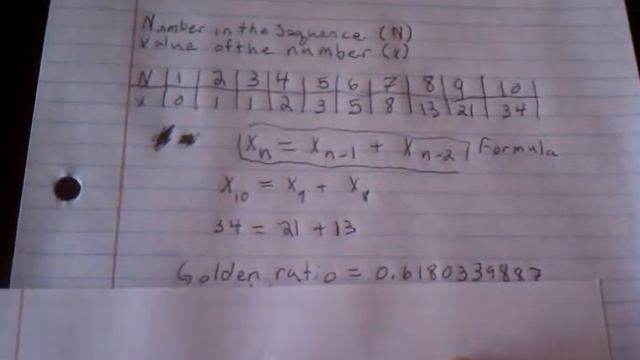 Number in the Sequence (N)
Value of the number (x)
N 1 2 3 4 5 6 7 8 9 10
x 0 1 1 2 3 5 8 13 21 34
Xn = Xn-1 + Xn-2 Formula
X10 = X9 + X8
34 = 21 + 13
Golden ratio = 0.6180339887